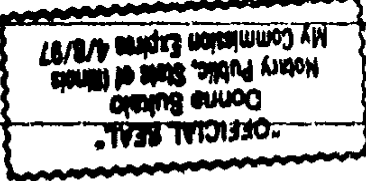 "OFFICIAL SEAL"
Donna
Notary Public, State of Illinois
My Commission Expires 4/8/97